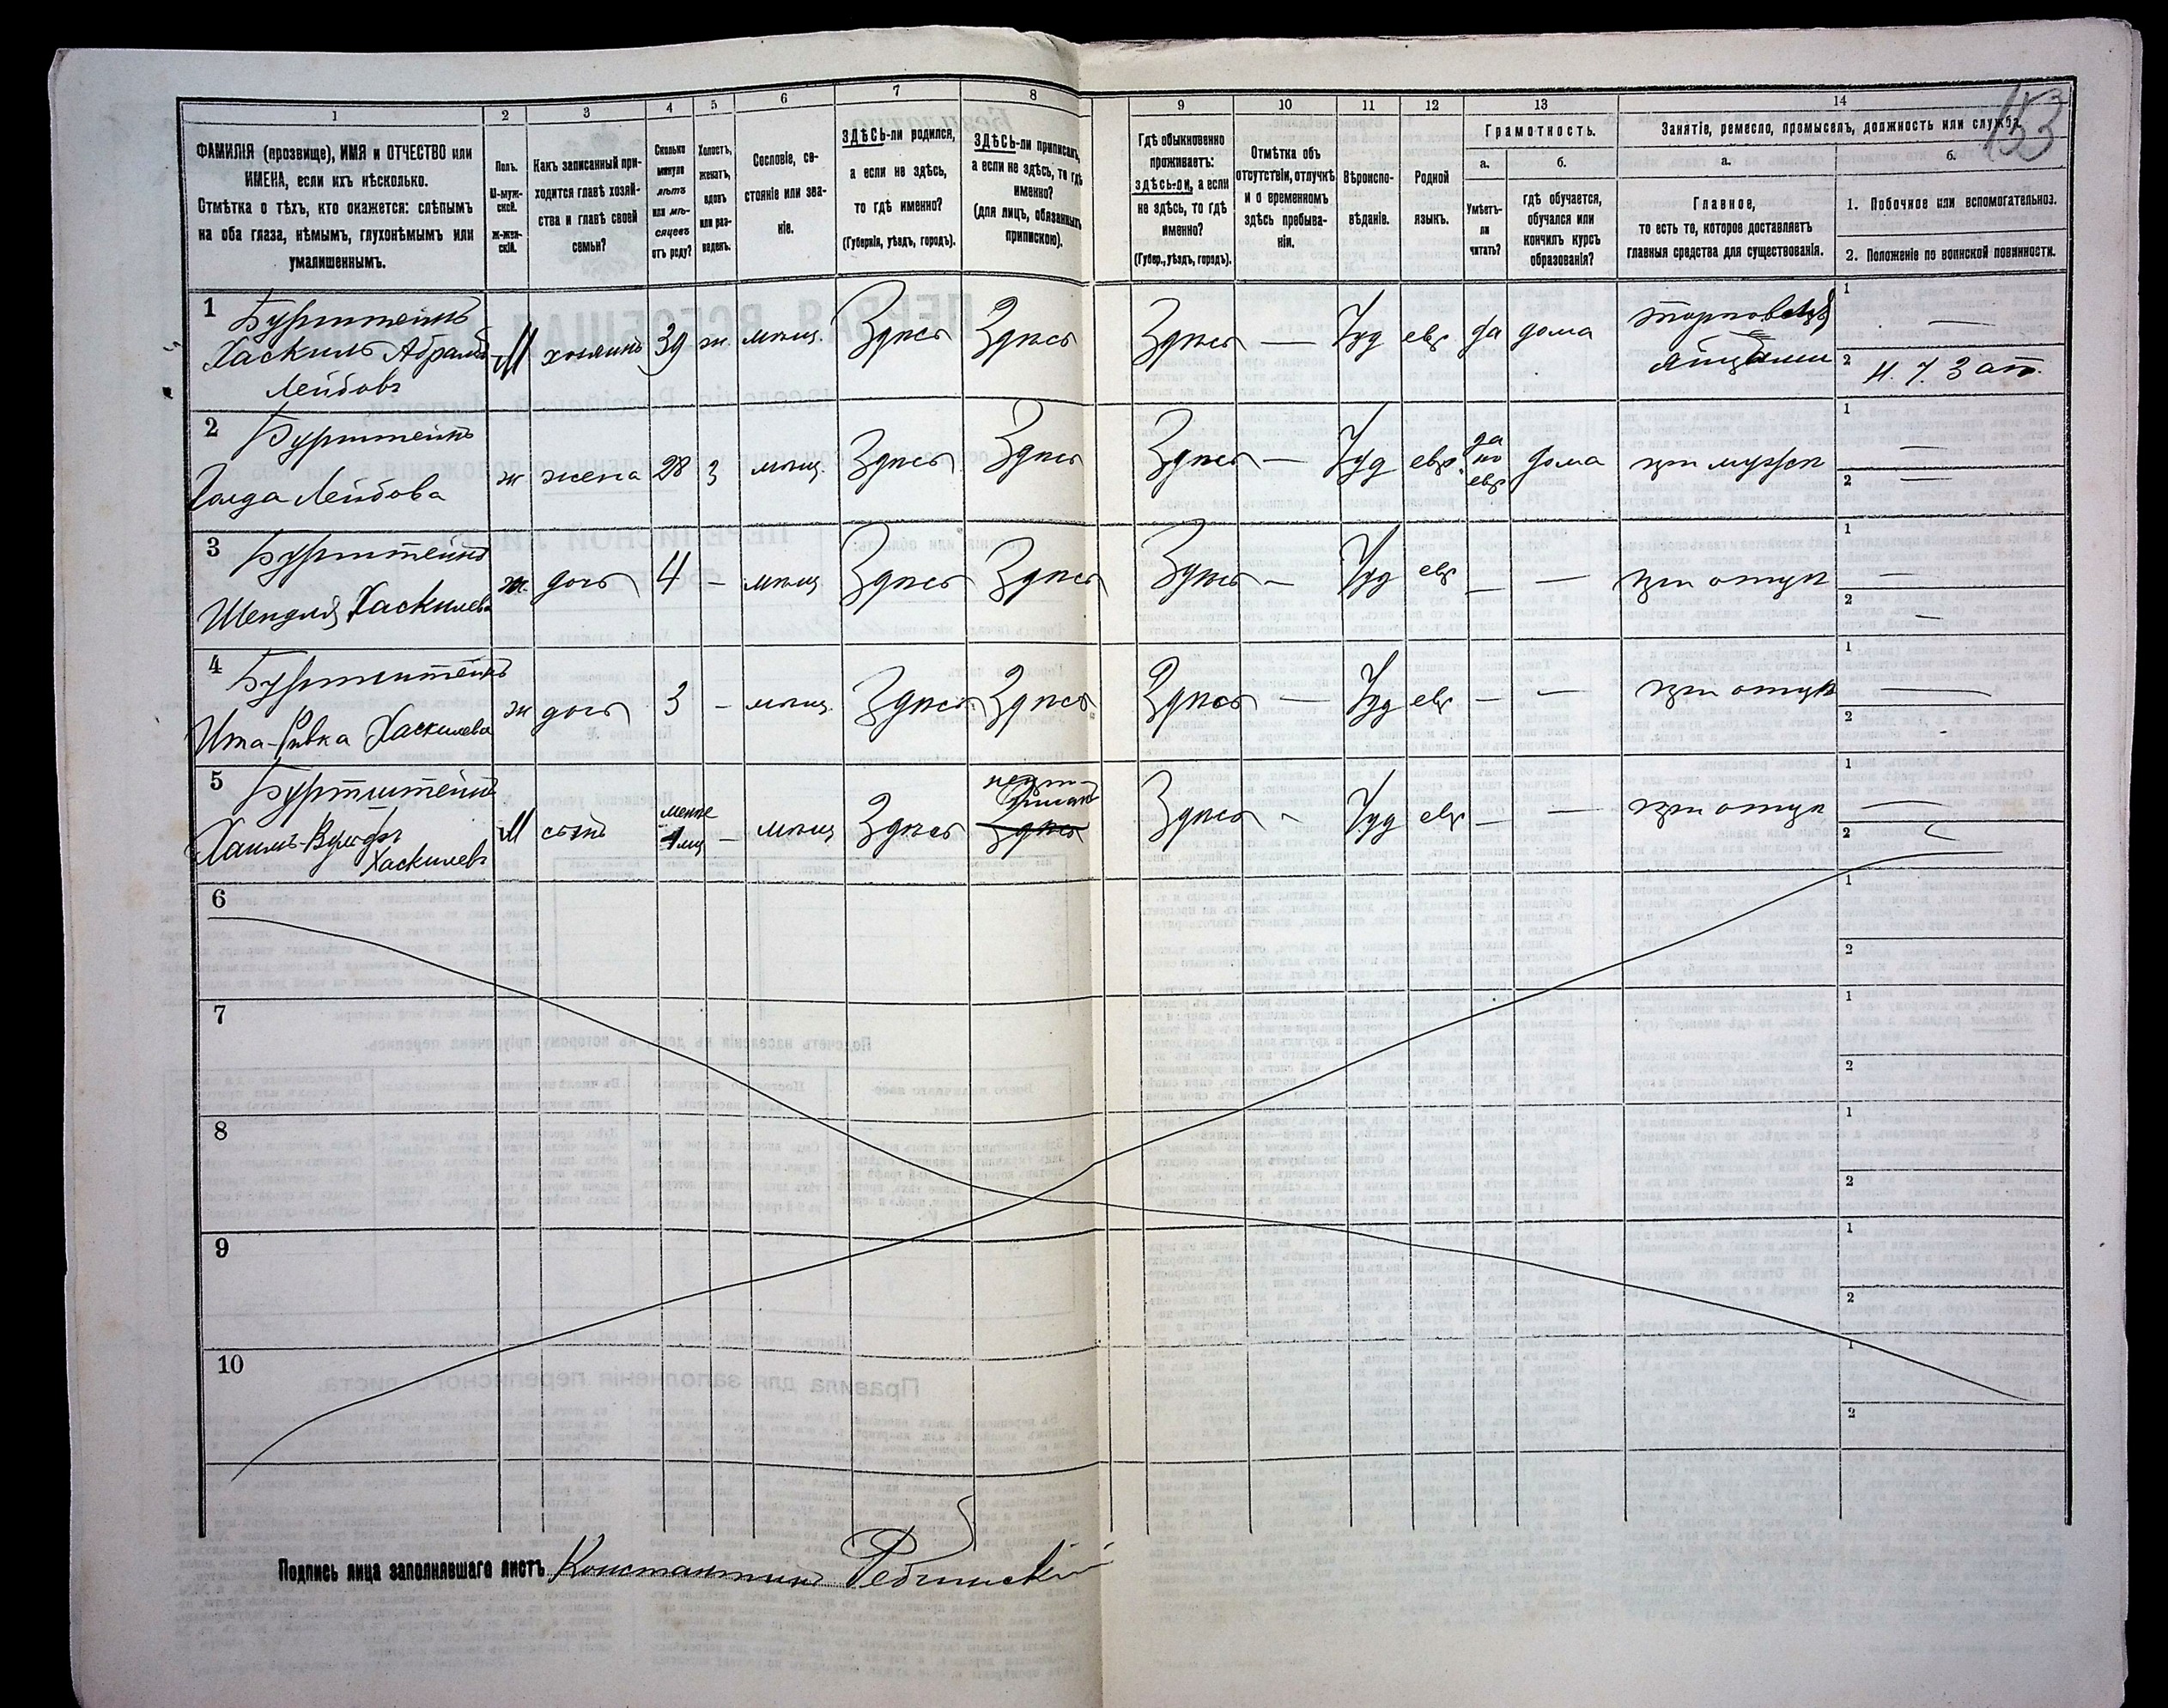 153
1 2 3 4 5 6 7 8 9 10 11 12 13 14
ФАМИЛІЯ (прозвище), ИМЯ и ОТЧЕСТВО или
ИМЕНА, если ихъ нѣсколько.
Отмѣтка о тѣхъ, кто окажется: слѣпымъ
на оба глаза, нѣмымъ, глухонѣмымъ или
умалишеннымъ.
Полъ.
М-муж-
ской.
Ж-жен-
скій.
Какъ записанный при-
ходится главѣ хозяй-
ства и главѣ своей
семьи?
Сколько
минуло
лѣтъ
или мѣ-
сяцевъ
отъ роду?
Холостъ,
женатъ,
вдовъ
или раз-
веденъ.
Сословіе, со-
стояніе или зва-
ніе.
ЗДѢСЬ-ли родился,
а если не здѣсь,
то гдѣ именно?
(Губернія, уѣздъ, городъ).
ЗДѢСЬ-ли приписанъ,
а если не здѣсь, то гдѣ
именно?
(для лицъ, обязанныхъ
припискою).
Гдѣ обыкновенно
проживаетъ:
здѣсь-ли, а если
не здѣсь, то гдѣ
именно?
(Губер., уѣздъ, городъ).
Отмѣтка объ
отсутствіи, отлучкѣ
и о временномъ
здѣсь пребыва-
ніи.
Вѣроиспо-
вѣданіе.
Родной
языкъ.
Грамотность.
а.
Умѣетъ-
ли
читать?
б.
гдѣ обучается,
обучался или
кончилъ курсъ
образованія?
Занятіе, ремесло, промыселъ, должность или служба.
а.
Главное,
то есть то, которое доставляетъ
главныя средства для существованія.
б.
1. Побочное или вспомогательное.
2. Положеніе по воинской повинности.
1 Бурштейнъ
Хаскиль Абрамъ
Лейбовъ
М хозяинъ 39 ж. мѣщ. Здѣсь Здѣсь Здѣсь — Іуд евр да дома
торговецъ
яйцами
1 —
2
2 Бурштейнъ
Голда Лейбова
ж жена 28 З мѣщ. Здѣсь Здѣсь Здѣсь — Іуд евр.
да
по
евр
дома при мужѣ
1 —
2 —
3 Бурштейнъ
Шендля Хаскилева
ж. дочь 4 - мѣщ Здѣсь Здѣсь Здѣсь — Іуд евр — — при отцѣ
1 —
2 —
4 Бурштейнъ
Ита-Ривка Хаскилева
ж дочь 3 - мѣщ. Здѣсь Здѣсь Здѣсь — Іуд евр — — при отцѣ
1 —
2
5 Бурштейнъ
Хаимъ-Вульфъ
Хаскилевъ
М сынъ
менѣе
1 мѣс
— мѣщ Здѣсь
непри-
писанъ
Здѣсь
Здѣсь - Іуд евр — — при отцѣ
1 —
2
6
1
2
7
1
2
8
1
2
9
1
2
10
1
2
Подпись лица заполнявшаго листъ Константинъ